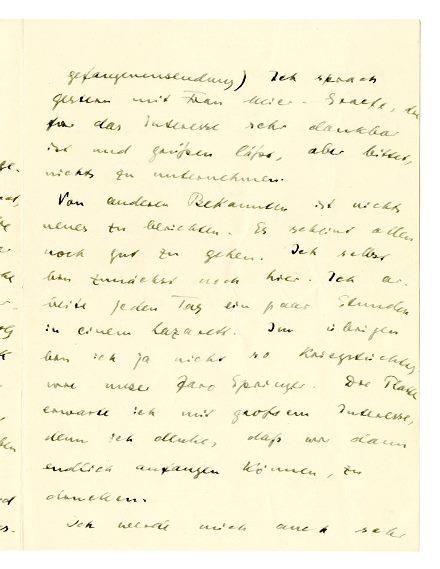 gefangenensendung) Ich sprach
gestern mit Frau Meier-Graefe, die
für das Interesse sehr dankbar
ist und grüßen läßt, aber bittet,
nichts zu unternehmen.
Von anderen Bekannten ist nichts
neues zu berichten. Es scheint allen
noch gut zu gehen. Ich selbst
bin zunächst noch hier. Ich ar-
beite jeden Tag ein paar Stunden
in einem Lazarett. Im übrigen
bin ich ja nicht so kriegstüchtig
wie unser Springer. Die
erwarte ich mit großem Interesse,
denn ich denke, daß wir dann
endlich anfangen können, zu
drucken.
Ich werde mich auch sehr